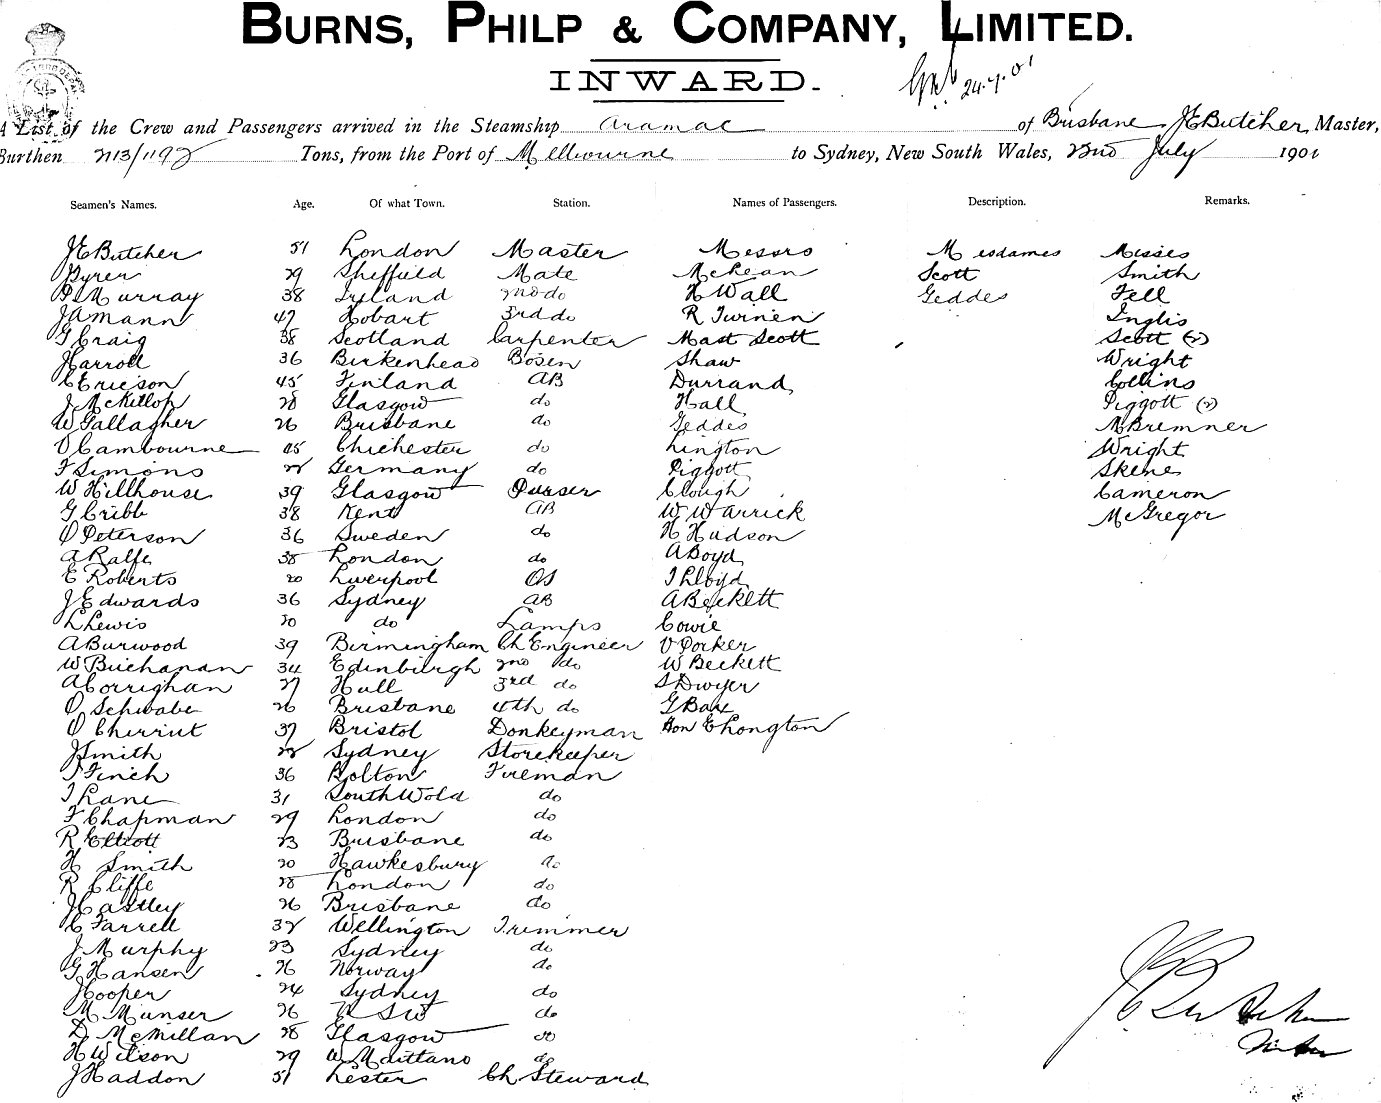 BURNS, PHILP & COMPANY, LIMITED.
INWARD.
24.7.01
A List of the Crew and Passengers arrived in the Steamship Aramac of Brisbane JE Butcher, Master,
Burthen 2113/1192 Tons, from the Port of Melbourne to Sydney, New South Wales, 22nd July 1901
Seamen's Names. Age. Of what Town. Station. Names of Passengers. Description. Remarks.
JE Butcher 51 London Master Messrs Mesdames Misses
Pyrer 29 Sheffield Mate McLean Scott Smith
P Murray 38 Ireland 2nd do H Wall Geddes Fell
JA Mann 47 Hobart 3rd do R Turnen Inglis
G Craig 38 Scotland Carpenter Mast Scott Scott (2)
J Carroll 36 Birkenhead Bosen Shaw Wright
C Ericson 45 Finland AB Durrand Collins
J McKillop 28 Glasgow do Hall Piggott (2)
W Gallagher 26 Brisbane do Geddes M Bremner
O Cambourne 45 Chichester do Lington Wright
F Simons 22 Germany do Piggott Skene
W Hillhouse 39 Glasgow Purser Clough Cameron
G Cribb 38 Kent AB W Warrick McGregor
O Peterson 36 Sweden do H Hudson
A Ralfe 38 London do A Boyd
E Roberts 20 Liverpool OS J Lloyd
J Edwards 36 Sydney AB A Beckett
L Lewis 20 do Lamps Cowie
A Burwood 39 Birmingham Ch Engineer V Porker
W Buchanan 34 Edinburgh 2nd do W Beckett
A Corrighan 27 Hull 3rd do S Dwyer
O Schwabe 26 Brisbane 4th do G Bax
O Cherrit 37 Bristol Donkeyman Hon E Longton
J Smith 22 Sydney Storekeeper
J Finch 36 Bolton Fireman
J Lane 31 SouthWold do
F Chapman 29 London do
R Elliott 23 Brisbane do
H Smith 20 Hawkesbury do
R Cliffe 28 London do
J Castley 26 Brisbane do
C Farrell 32 Wellington Trimmer
J Murphy 23 Sydney do
G Hansen 26 Norway do
J Cooper 24 Sydney do
M Munser 26 NSW do
D McMillan 28 Glasgow do
H Wilson 29 W Maittano do
J Haddon 51 Lester Ch Steward
JE Butcher
Master